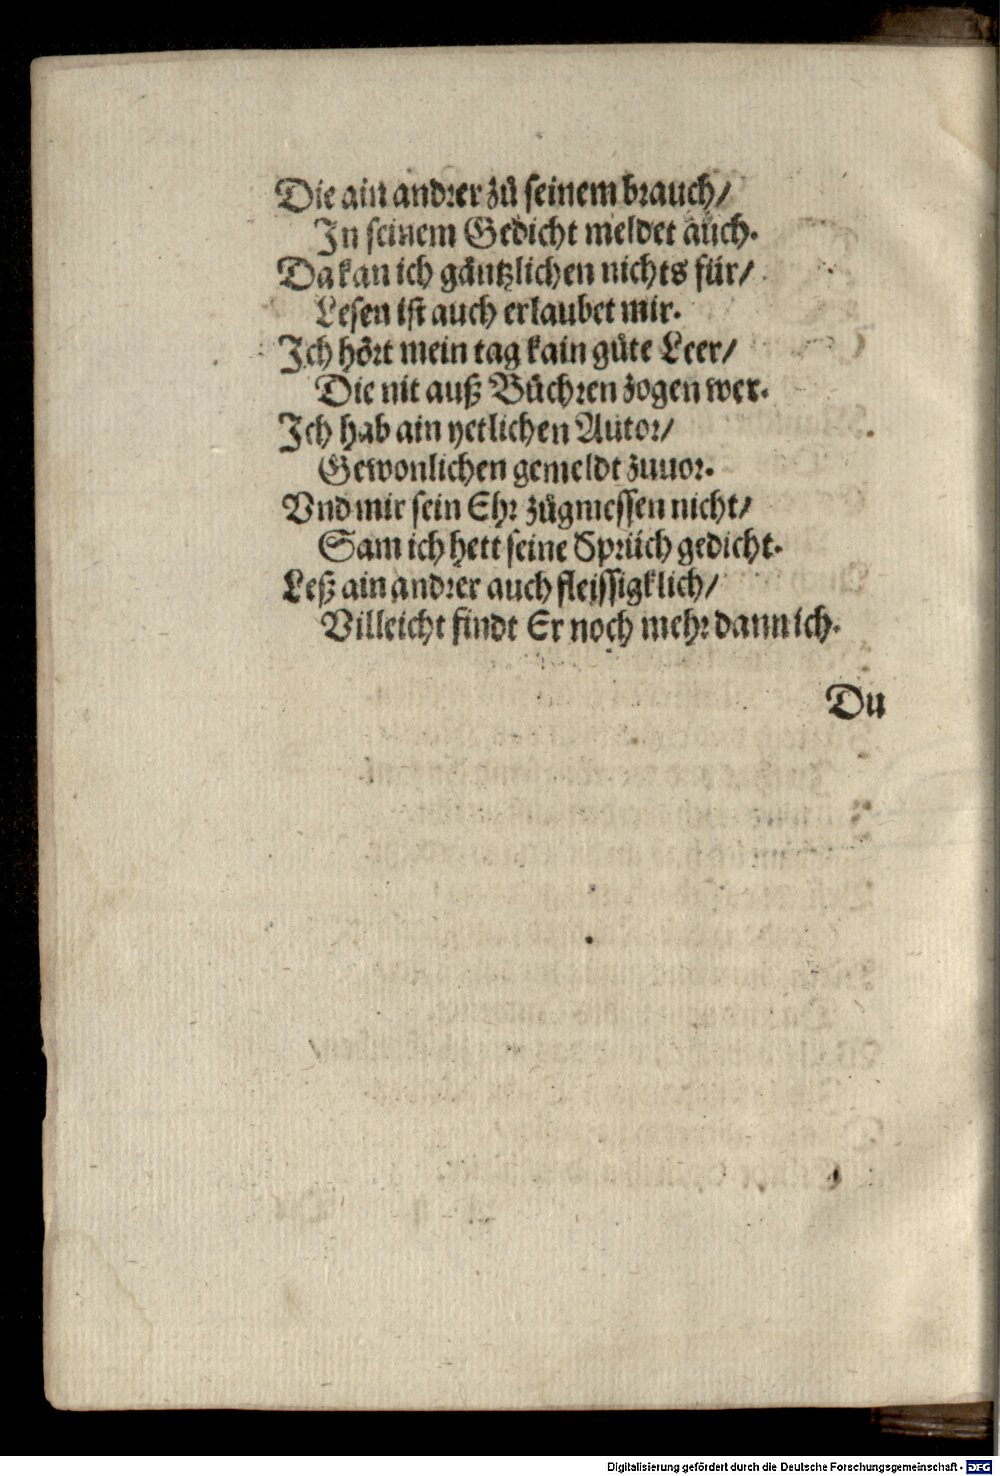 Die ain andrer zů seinem brauch/
In seinem Gedicht meldet auch.
Da kan ich gäntzlichen nichts für/
Lesen ist auch erlaubet mir.
Ich hört mein tag kain gůte Leer/
Die nit auß Bůchren zogen wer.
Ich hab ain yetlichen Autor/
Gewonlichen gemeldt zuuor.
Vnd mir sein Ehr zůgmessen nicht/
Sam ich hett seine Sprüch gedicht.
Leß ain andrer auch fleissigklich/
Villeicht findt Er noch mehr dann ich.
Du
Digitalisierung gefördert durch die Deutsche Forschungsgemeinschaft - DFG